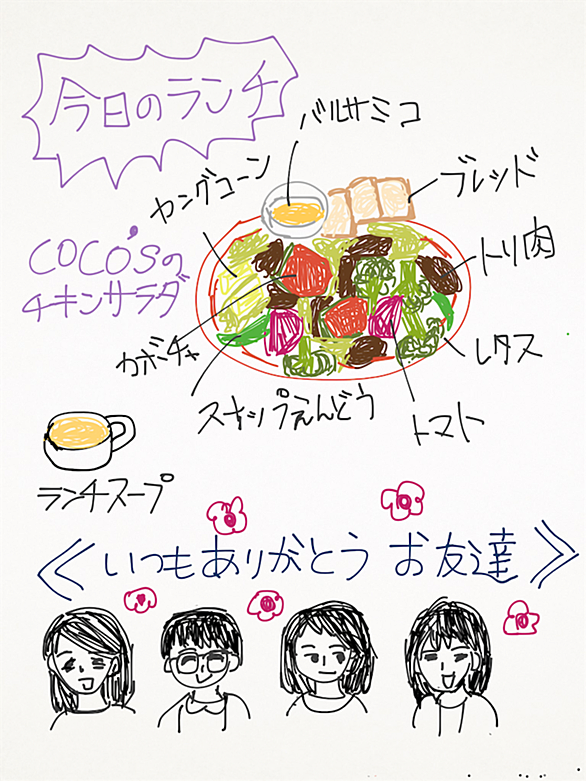 今日のランチ
バルサミコ
ブレッド
ヤングコーン
トリ肉
COCO'Sの
チキンサラダ
カボチャ
レタス
スナップえんどう
トマト
ランチスープ
≪いつもありがとう お友達≫